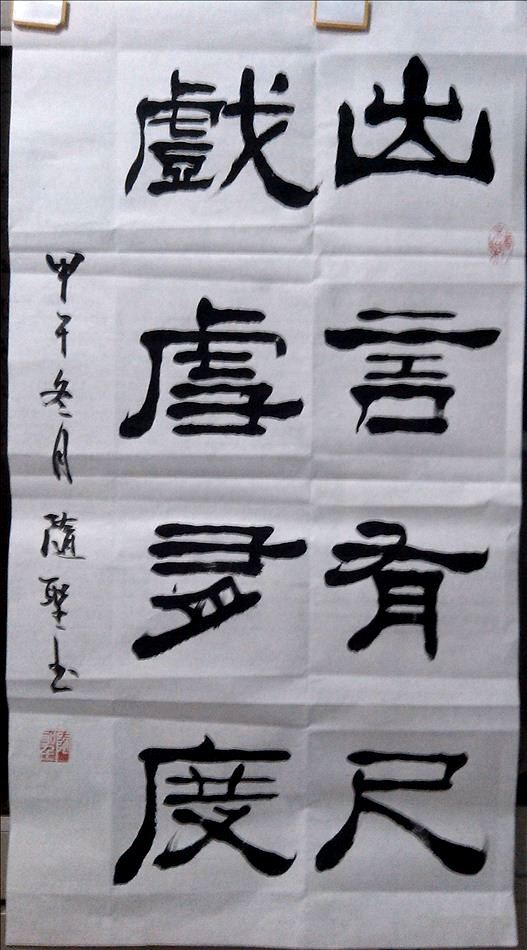 出言有尺
戲虐有度
甲午冬月 隨聖书